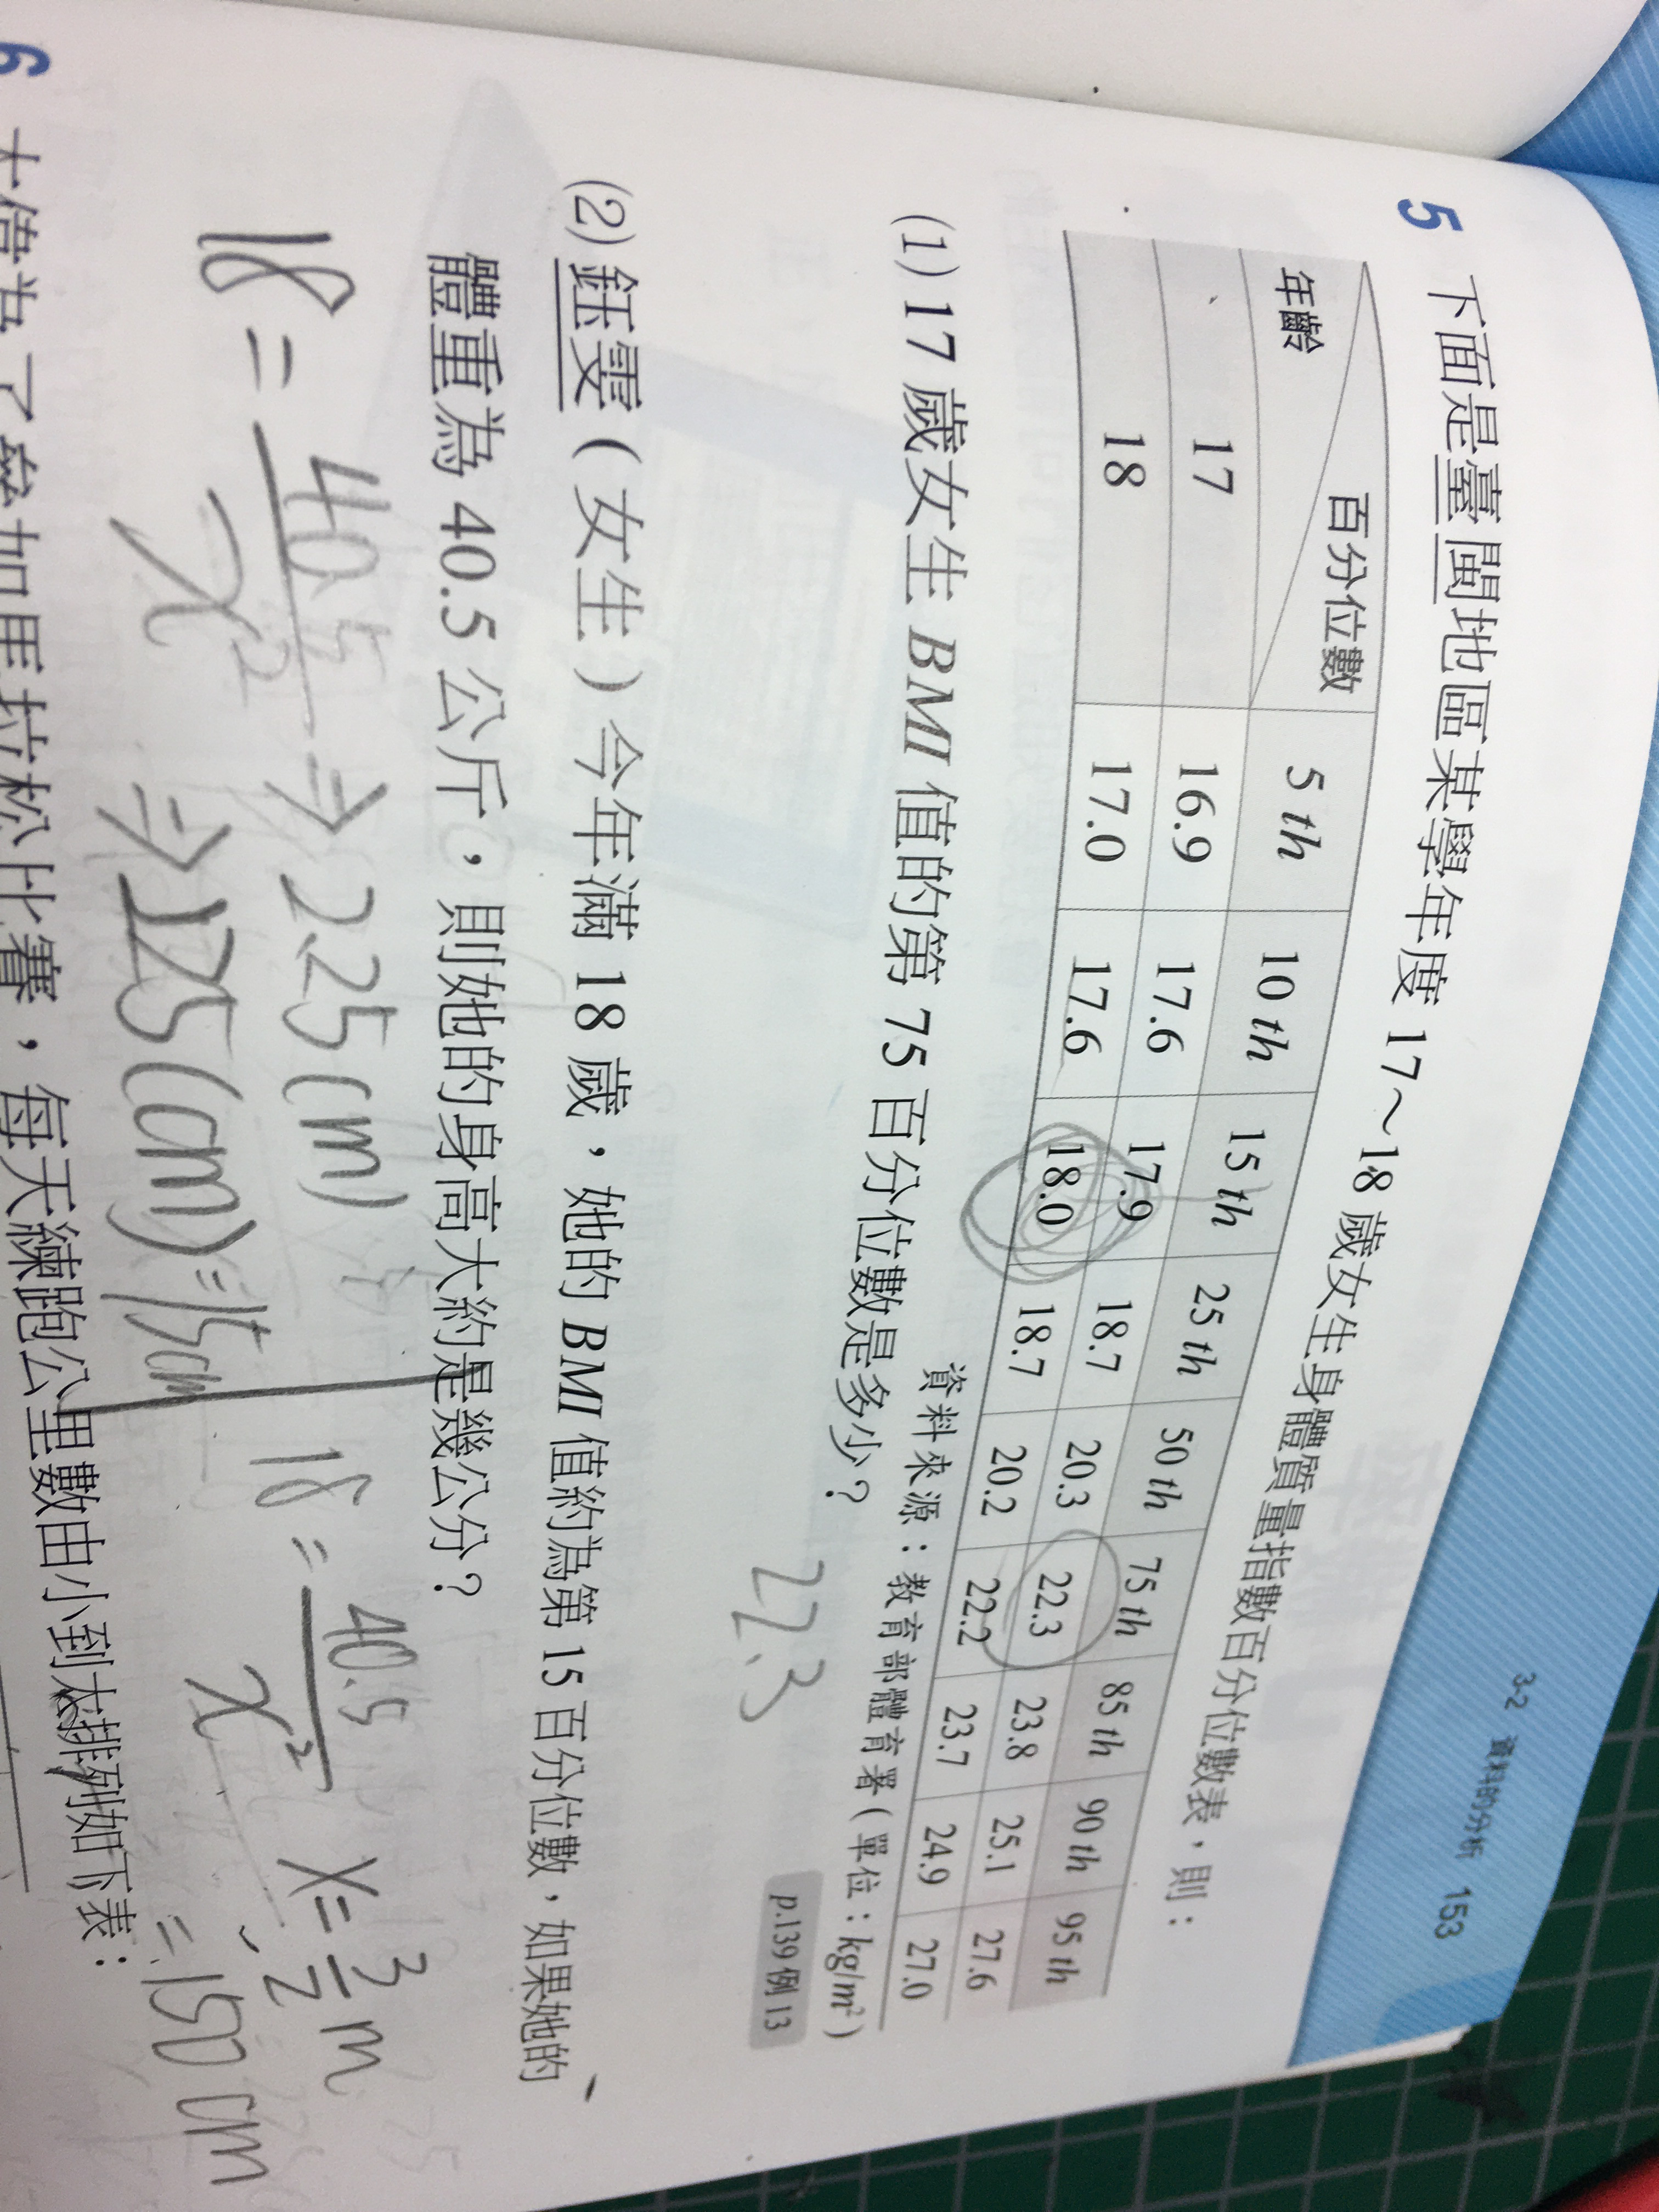 3-2 資料的分析 153
5 下面是臺閩地區某學年度 17～18 歲女生身體質量指數百分位數表，則：
年齡 百分位數 5 th 10 th 15 th 25 th 50 th 75 th 85 th 90 th 95 th
17 16.9 17.6 17.9 18.7 20.3 22.3 23.8 25.1 27.6
18 17.0 17.6 18.0 18.7 20.2 22.2 23.7 24.9 27.0
資料來源：教育部體育署（單位：kg/m²）
(1) 17 歲女生 BMI 值的第 75 百分位數是多少？
p.139 例 13
22.3
(2) 鈺雯（女生）今年滿 18 歲，她的 BMI 值約為第 15 百分位數，如果她的
體重為 40.5 公斤，則她的身高大約是幾公分？
18 = 40.5 / x² ⇒ 2.25 (m)
⇒ 125 (cm) = 15cm
18 = 40.5 / x² x = 3/2 m
= 150 cm
6 大偉為了參加里拉松比賽，每天練跑公里數由小到大排列如下表：